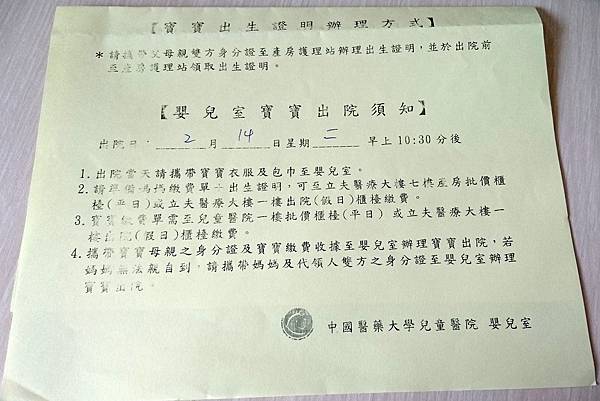 【寶寶出生證明辦理方式】
*請攜帶父母親雙方身分證至產房護理站辦理出生證明,並於出院前
至產房護理站領取出生證明。
【嬰兒室寶寶出院須知】
出院日:2月14日星期二 早上10:30分後
1.出院當天請攜帶寶寶衣服及包巾至嬰兒室。
2.請準備媽媽繳費單+出生證明,可至立夫醫療大樓七樓產房批價櫃
檯(平日)或立夫醫療大樓一樓出院(假日)櫃檯繳費。
3.寶寶繳費單需至兒童醫院一樓批價櫃檯(平日) 或立夫醫療大樓一
樓出院(假日)櫃檯繳費。
4.攜帶寶寶母親之身分證及寶寶繳費收據至嬰兒室辦理寶寶出院,若
媽媽無法親自到,請攜帶媽媽及代領人雙方之身分證至嬰兒室辦理
寶寶出院。
中國醫藥大學兒童醫院 嬰兒室